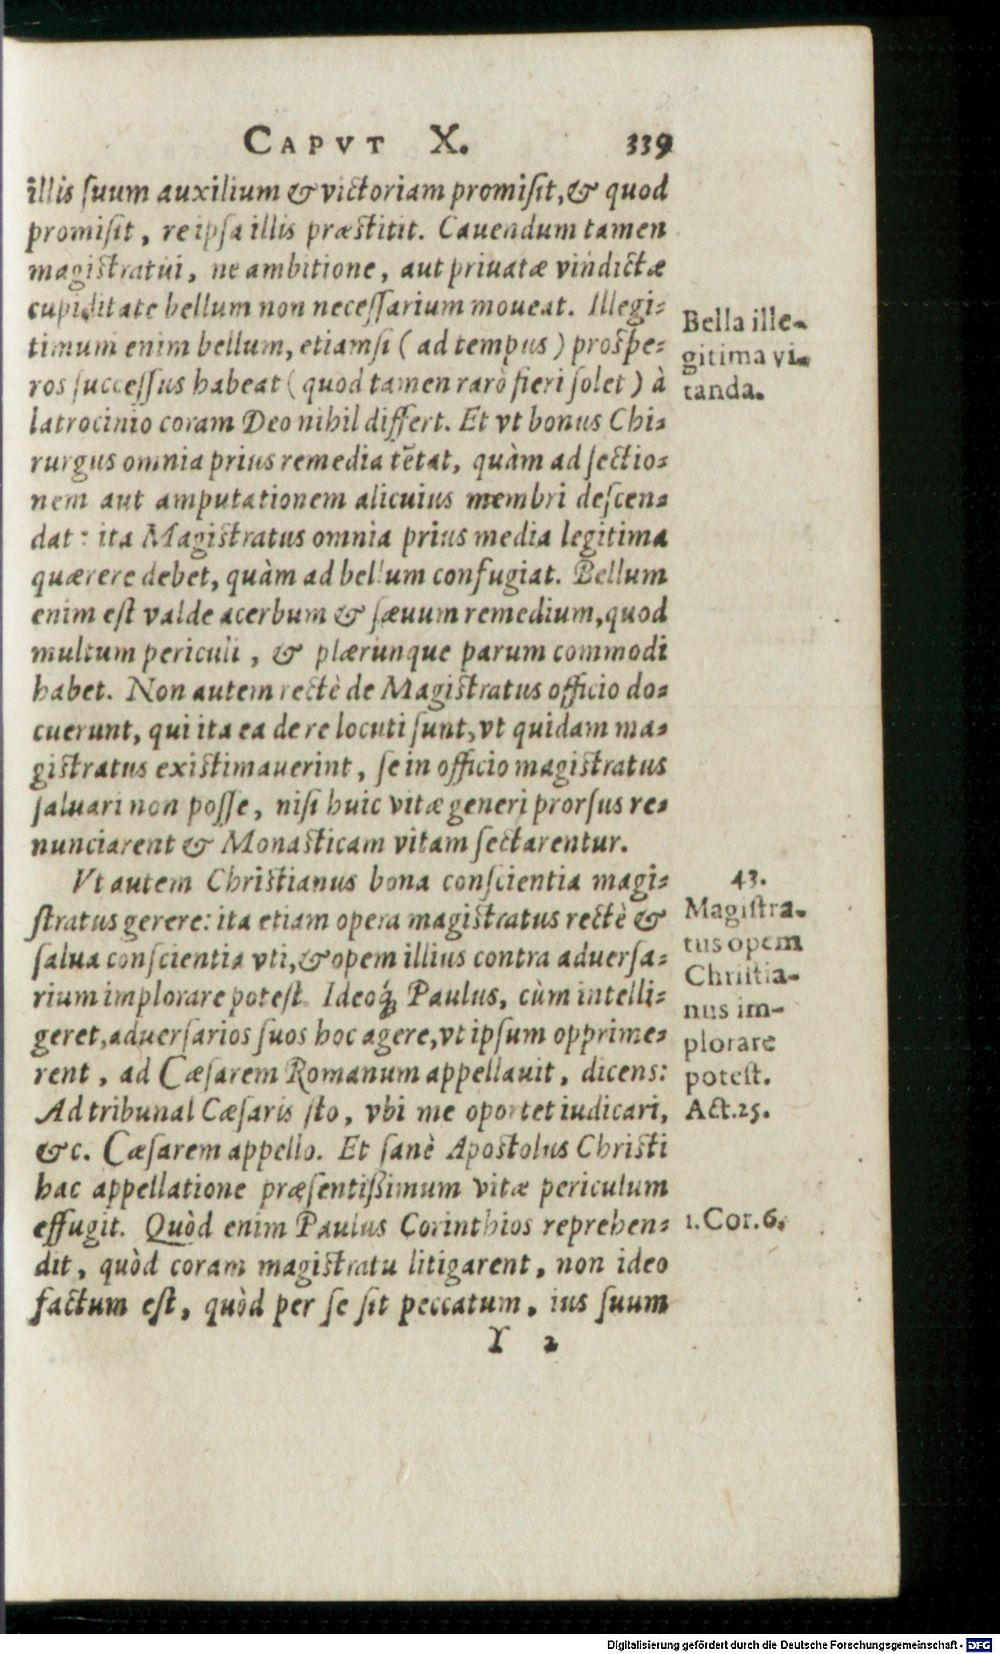 CAPVT X. 339
illis ſuum auxilium & victoriam promiſit, & quod
promiſit, re ipſa illis præſtitit. Cauendum tamen
magiſtratui, ne ambitione, aut priuatæ vindictæ
cupiditate bellum non neceſſarium moueat. Illegi-
timum enim bellum, etiamſi (ad tempus) proſpe-
ros ſucceſſus habeat (quod tamen rarò fieri ſolet) à
latrocinio coram Deo nihil differt. Et vt bonus Chi-
rurgus omnia prius remedia tẽtat, quàm ad ſectio-
nem aut amputationem alicuius membri deſcen-
dat: ita Magiſtratus omnia prius media legitima
quærere debet, quàm ad bellum confugiat. Bellum
enim eſt valde acerbum & ſæuum remedium, quod
multum periculi, & plærunque parum commodi
habet. Non autem rectè de Magiſtratus officio do-
cuerunt, qui ita ea de re locuti ſunt, vt quidam ma-
giſtratus exiſtimauerint, ſe in officio magiſtratus
ſaluari non poſſe, niſi huic vitæ generi prorſus re-
nunciarent & Monaſticam vitam ſectarentur.
Vt autem Chriſtianus bona conſcientia magi-
ſtratus gerere: ita etiam opera magiſtratus rectè &
ſalua conſcientia vti, & opem illius contra aduerſa-
rium implorare poteſt. Ideoq́; Paulus, cùm intelli-
geret, aduerſarios ſuos hoc agere, vt ipſum opprime-
rent, ad Cæſarem Romanum appellauit, dicens:
Ad tribunal Cæſaris ſto, vbi me oportet iudicari,
&c. Cæſarem appello. Et ſanè Apoſtolus Chriſti
hac appellatione præſentißimum vitæ periculum
effugit. Quòd enim Paulus Corinthios reprehen-
dit, quòd coram magiſtratu litigarent, non ideo
factum eſt, quòd per ſe ſit peccatum, ius ſuum
Y 2
Bella ille-
gitima vi-
tanda.
43.
Magiſtra-
tus opem
Chriſtia-
nus im-
plorare
poteſt.
Act.25.
1.Cor.6.
Digitalisierung gefördert durch die Deutsche Forschungsgemeinschaft - DFG